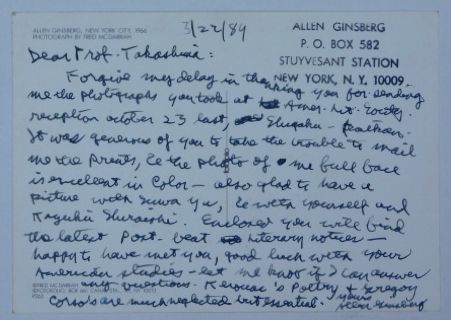 ALLEN GINSBERG, NEW YORK CITY, 1966
PHOTOGRAPH BY FRED McDARRAH
3/22/89
ALLEN GINSBERG
P. O. BOX 582
STUYVESANT STATION
NEW YORK, N. Y. 10009
Dear Prof. Takashima:
Forgive my delay in thanking you for sending
me the photographs you took at Amer. Lit. Society
reception October 23 last,
It was generous of you to take the trouble to mail
me the prints, & the photo of me full face
is excellent in color — also glad to have a
picture with Suwa Yu, & with yourself and
Kazuko Shiraishi. Enclosed you will find
the latest Post-beat literary notices —
happy to have met you, good luck with your
American studies — let me know if I can answer
any questions. Kerouac's Poetry & Gregory
Corso's are much neglected but essential. yours
Allen Ginsberg
©FRED McDARRAH